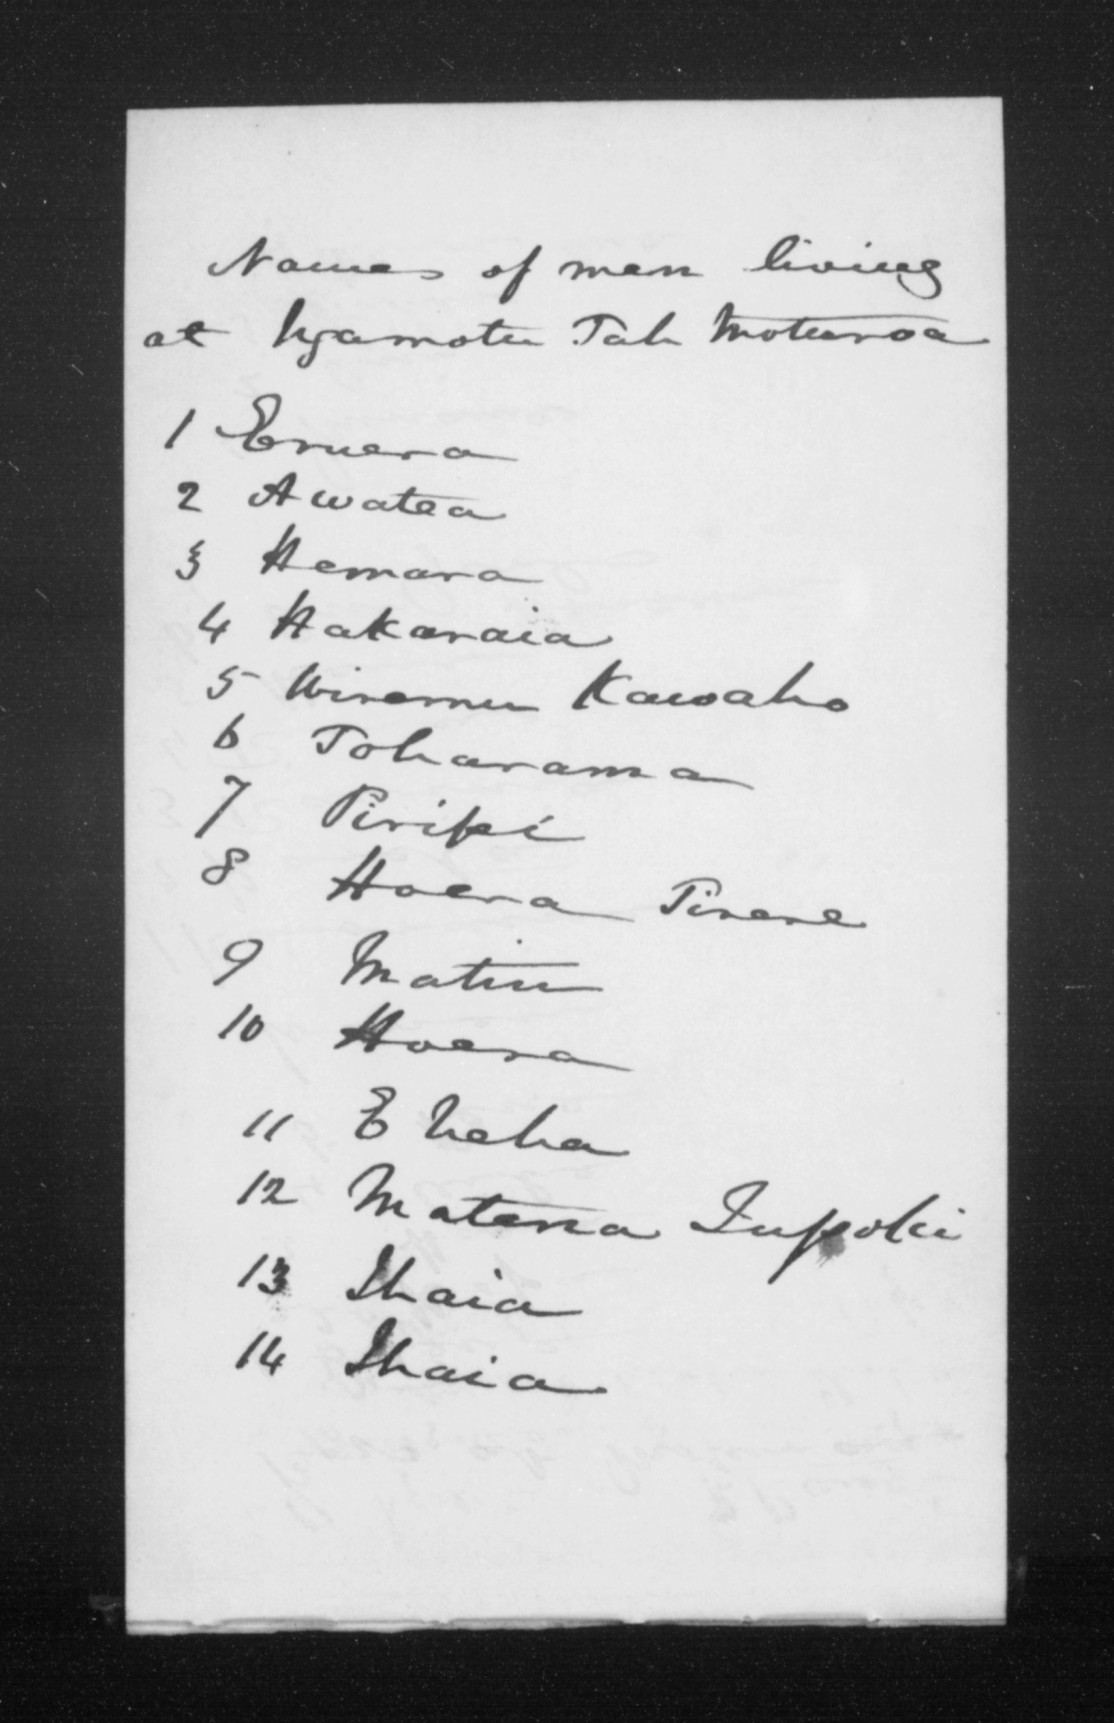 Names of men living
at Ngamotu Pah Moturoa
1 Eruera
2 Awatea
3 Hemara
4 Hakaraia
5 Wiremu Kawaho
6 Toharama
7 Piripi
8 Hoera Pirere
9 Matiu
10 Hoera
11 E Heha
12 Matena Tupoki
13 Ihaia
14 Ihaia